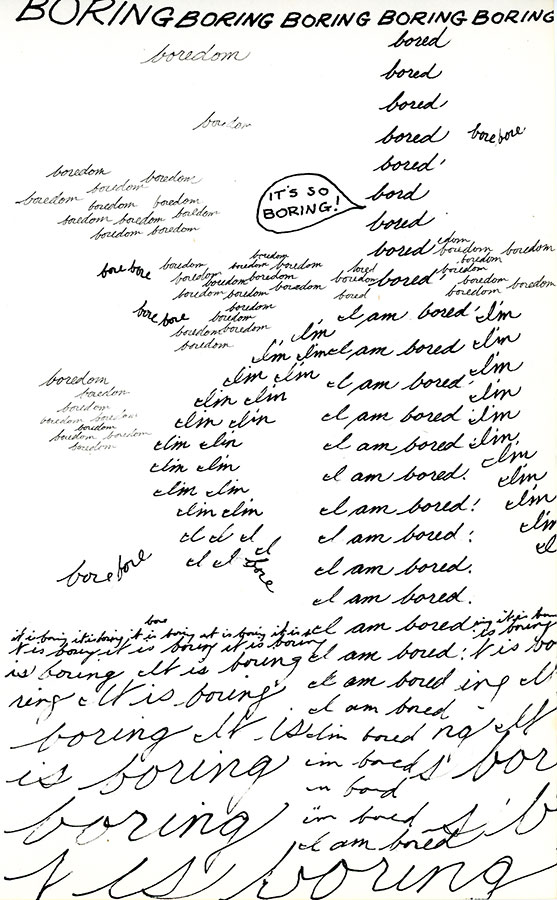 BORING BORING BORING BORING BORING
boredom
bored
bored
bored
boredom
bored bore bore
bored
boredom
boredom boredom
boredom boredom boredom
boredom boredom boredom
boredom boredom
IT'S SO
BORING!
bord
bored
bored
boredom boredom
boredom
bore bore boredom boredom boredom
boredom boredom boredom
bored
boredom bored boredom
boredom boredom boredom
bored
boredom boredom
bore bore boredom
boredom
boredom boredom
boredom
I am bored I'm
I'm
I'm I'm I am bored I'm
I'm I'm I am bored I'm
I'm I'm I'm
I'm I'm I am bored I'm
I'm I'm I am bored I'm
I'm I'm I am bored. I'm
I'm I'm I am bored! I'm
I'm I'm I'm
I I I I am bored.
I I I I am bored.
bore
I am bored.
boredom
boredom
boredom
boredom boredom
boredom
boredom boredom
boredom
bore bore
bore
it is boring it is boring it is boring it is boring it is I am bored it is
t is boring it is boring it is boring is boring
is boring It is boring I am bored. t is bo
ring It is boring I am bored ing It
I am bored
boring It is I'm bored ng It
is boring im bored s bor
n bord
boring im bored s b
I am bored
t is boring